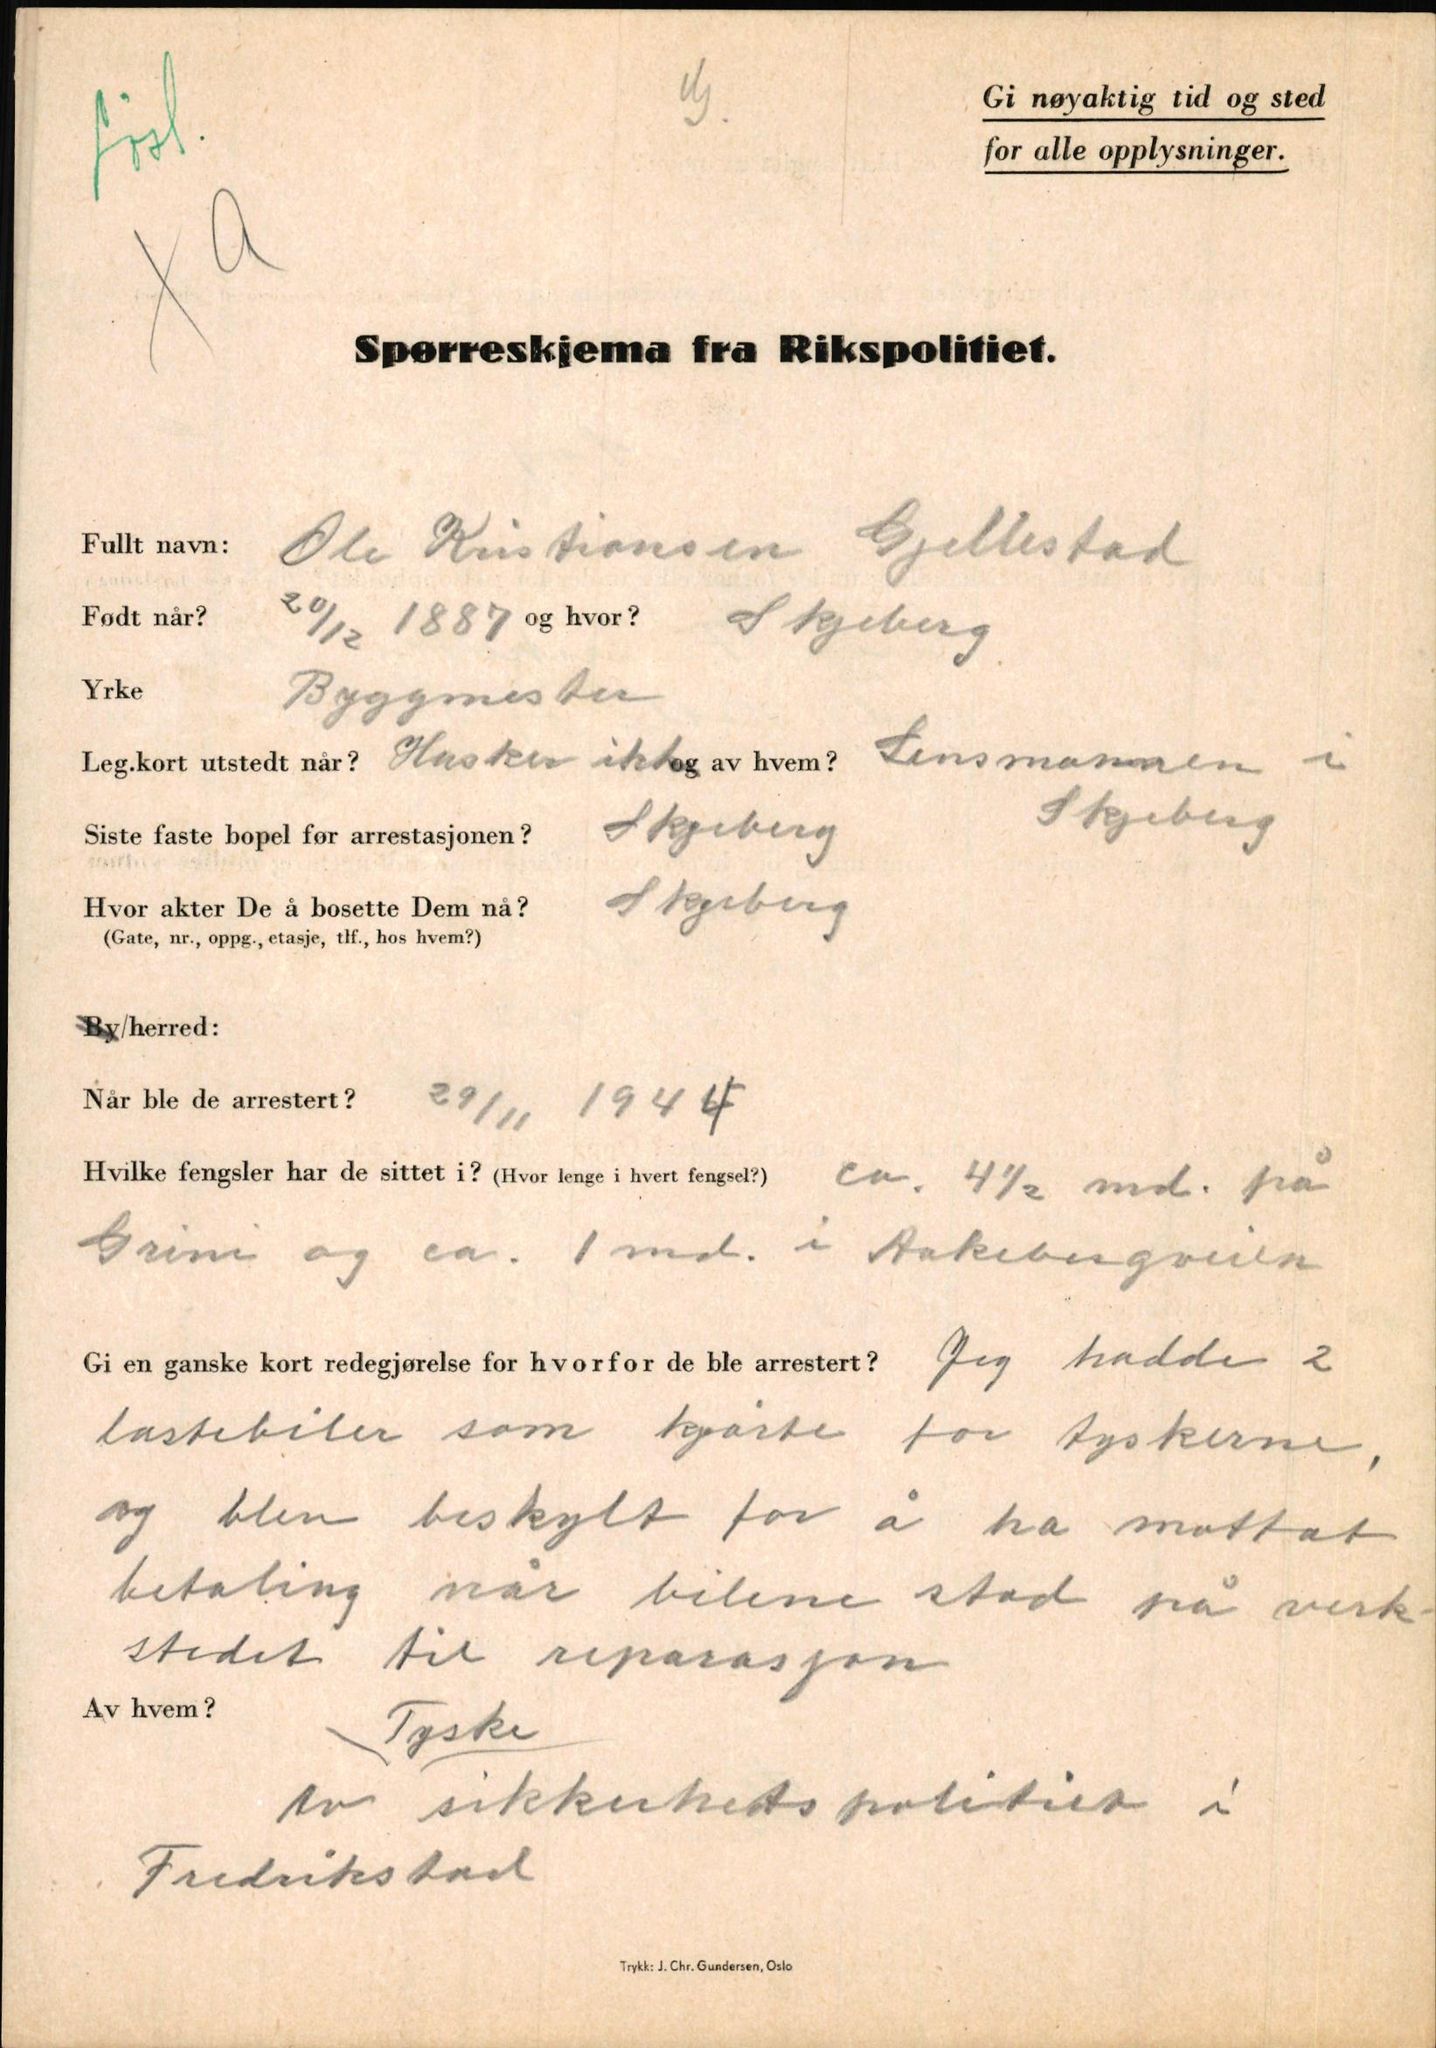 Gi nøyaktig tid og sted
for alle opplysninger.
A
Spørreskjema fra Rikspolitiet.
Fullt navn: Ole Kristiansen Gjellestad
Født når? 20/12 1887 og hvor? Skjeberg
Yrke Byggmester
Leg.kort utstedt når? Husker ikke og av hvem? Lensmannen i
Skjeberg
Siste faste bopel før arrestasjonen? Skjeberg
Hvor akter De å bosette Dem nå? Skjeberg
(Gate, nr., oppg., etasje, tlf., hos hvem?)
By/herred:
Når ble de arrestert? 29/11 1944
Hvilke fengsler har de sittet i? (Hvor lenge i hvert fengsel?) ca. 4 1/2 md. på
Grini og ca. 1 md. i Aakebergveien
Gi en ganske kort redegjørelse for hvorfor de ble arrestert? Jeg hadde 2
lastebiler som kjørte for tyskerne,
og blev beskylt for å ha mottat
betaling når bilene stod på verk-
stedet til reparasjon
Av hvem? Tyske
av sikkerhetspolitiet i
Fredrikstad
Trykk: J. Chr. Gundersen, Oslo